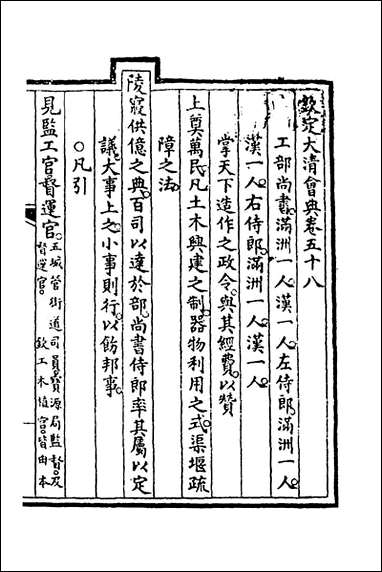 欽定大清會典卷五十八
工部尚書。滿洲一人。漢一人。左侍郎。滿洲一人。
漢一人。右侍郎。滿洲一人。漢一人
掌天下造作之政令。與其經費。以贊
上奠萬民。凡土木興建之制。器物利用之式。渠堰疏
障之法。
陵寢供億之典。百司以達於部。尚書侍郎率其屬以定
議。大事上之。小事則行。以飭邦事。
○凡引
見監工官督運官。五城管街道司員。寶源局監督。及
督運官。欽工木植官。皆由本